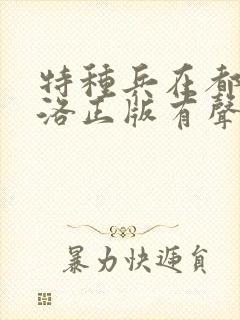 特種兵在都
洛正版有聲
暴力快遞員